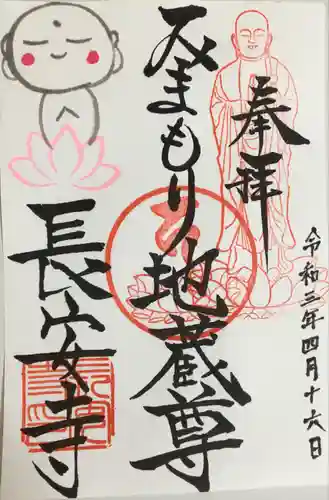 奉拝
令和二年四月十六日
まもり地蔵尊
長安寺